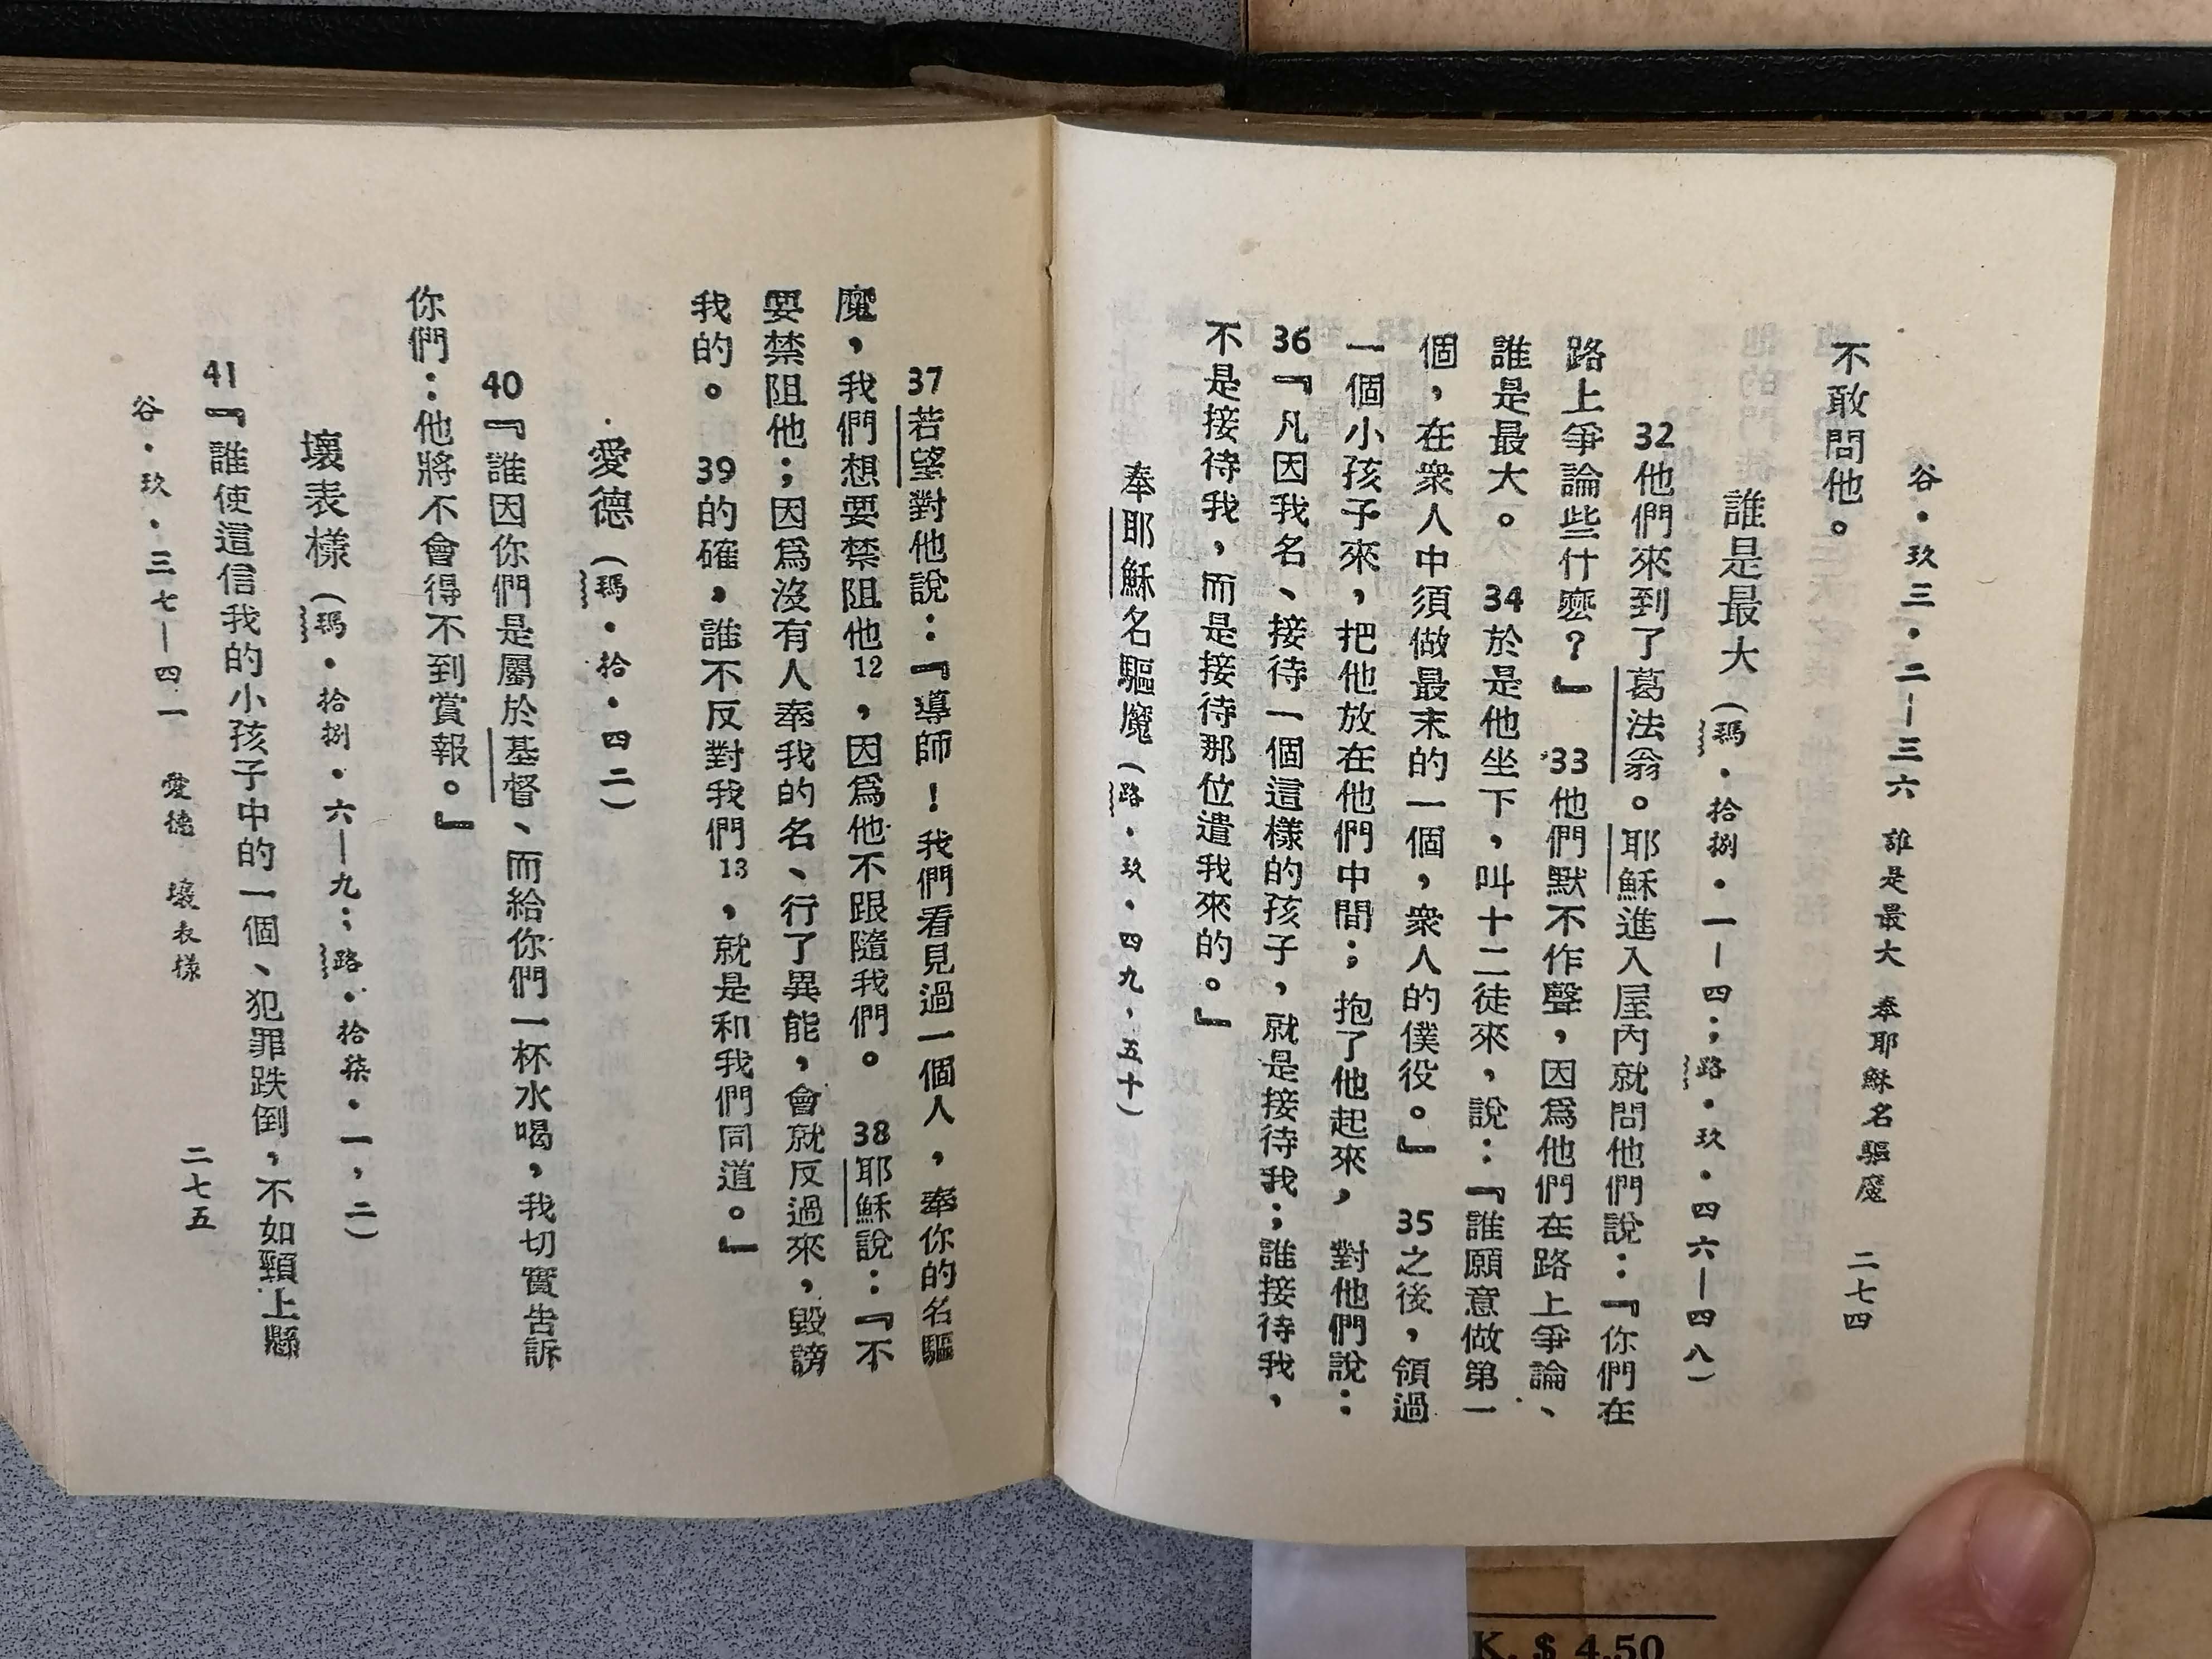 谷・玖三・二—三六 誰是最大 奉耶穌名驅魔 二七四
不敢問他。
誰是最大（瑪・拾捌・一—四；路・玖・四六—四八）
32他們來到了葛法翁。耶穌進入屋內就問他們說：『你們在
路上爭論些什麽？』 33他們默不作聲，因爲他們在路上爭論、
誰是最大。 34於是他坐下，叫十二徒來，說：『誰願意做第一
個，在衆人中須做最末的一個，衆人的僕役。』 35之後，領過
一個小孩子來，把他放在他們中間；抱了他起來，對他們說：
36『凡因我名、接待一個這樣的孩子，就是接待我；誰接待我，
不是接待我，而是接待那位遣我來的。』
奉耶穌名驅魔（路・玖・四九，五十）
37若望對他說：『導師！我們看見過一個人，奉你的名驅
魔，我們想要禁阻他12，因爲他不跟隨我們。 38耶穌說：『不
要禁阻他；因爲沒有人奉我的名、行了異能，會就反過來，毀謗
我的。 39的確，誰不反對我們13，就是和我們同道。』
愛德（瑪・拾・四二）
40『誰因你們是屬於基督、而給你們一杯水喝，我切實告訴
你們：他將不會得不到賞報。』
壞表樣（瑪・拾捌・六—九；路・拾柒・一，二）
41『誰使這信我的小孩子中的一個、犯罪跌倒，不如頸上懸
谷・玖・三七—四一 愛德 壞表樣 二七五
K. $ 4.50